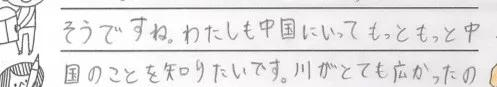 そうですね。わたしも中国にいってもっともっと中
国のことを知りたいです。川がとても広かったの